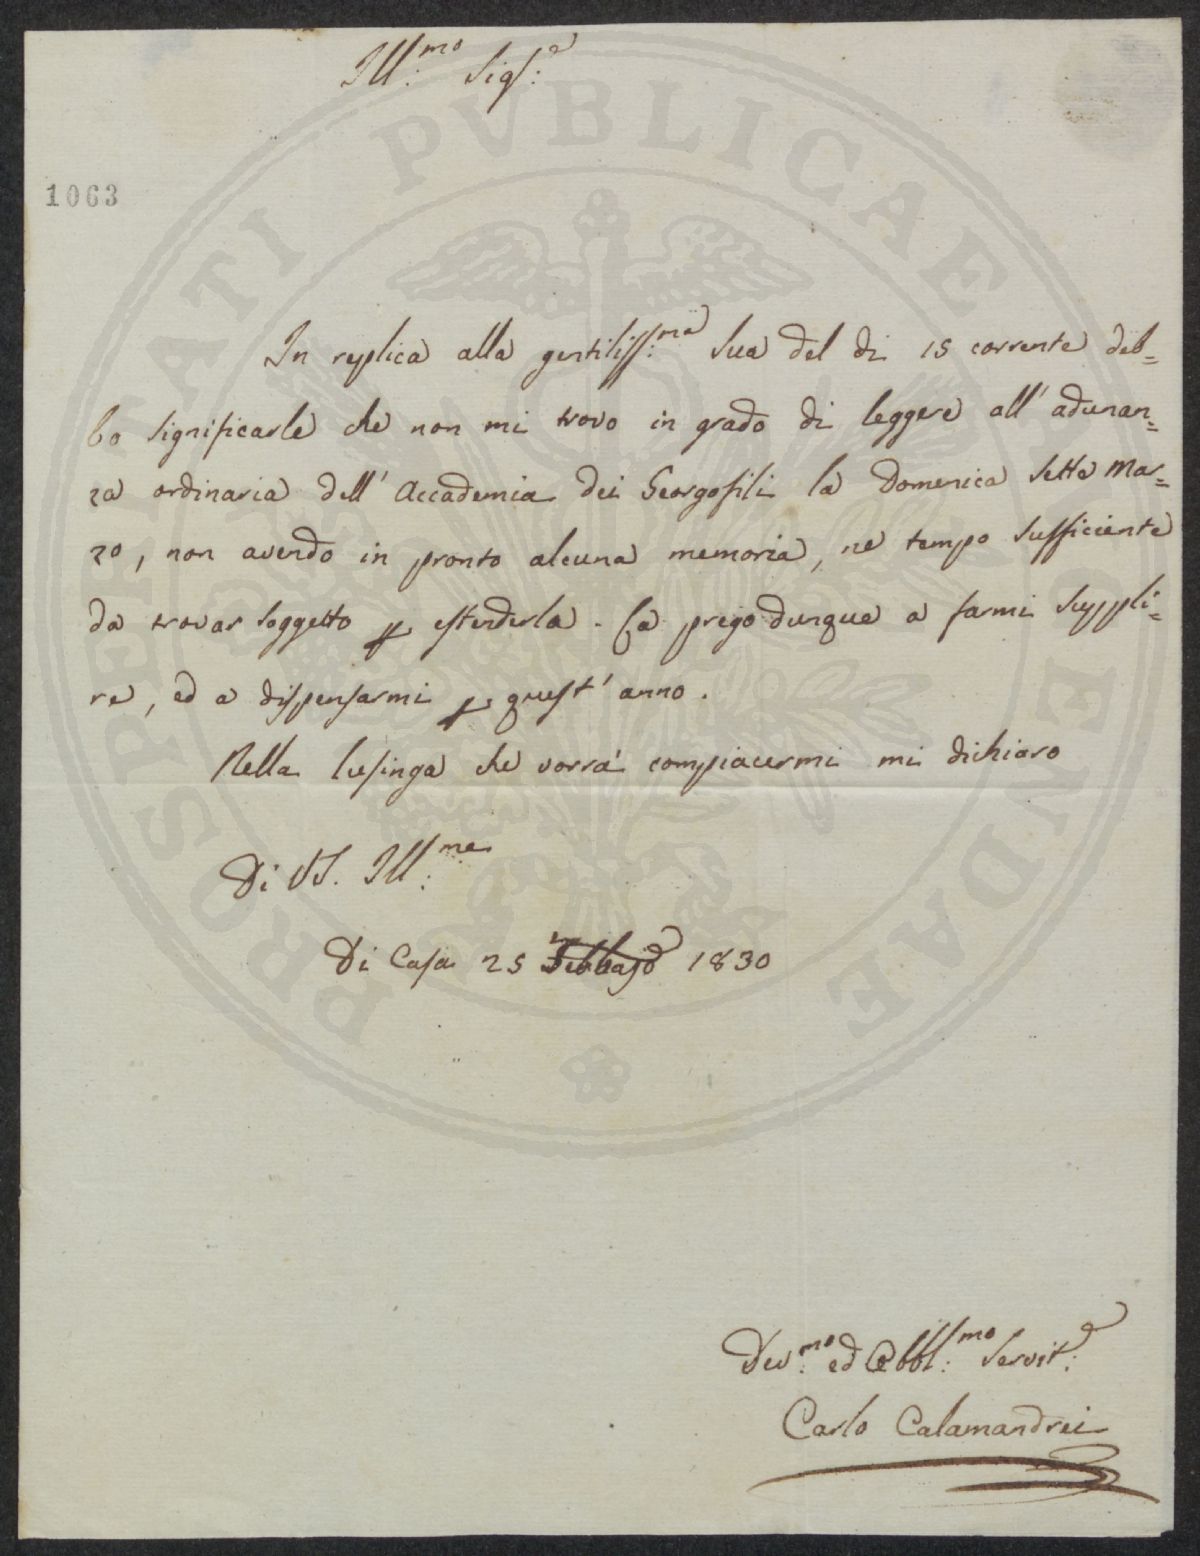 Ill:mo Sigr:e
1063
In replica alla gentiliss:ma Sua del di 15 corrente deb=
bo significarle che non mi trovo in grado di leggere all' adunan=
za ordinaria dell' Accademia dei Georgofili la Domenica Sette Mar=
zo, non avendo in pronto alcuna memoria, ne tempo sufficiente
da trovar soggetto p estenderla. La prego dunque a farmi suppli=
re, ed a dispensarmi p quest' anno.
Nella lusinga che vorrà compiacermi mi dichiaro
Di VS. Ill:ma
Di Casa 25 Febbajo 1830
Dev:mo ed Obbl:mo Servit:e
Carlo Calamandrei
PROSPERITATI PVBLICAE AVGENDAE